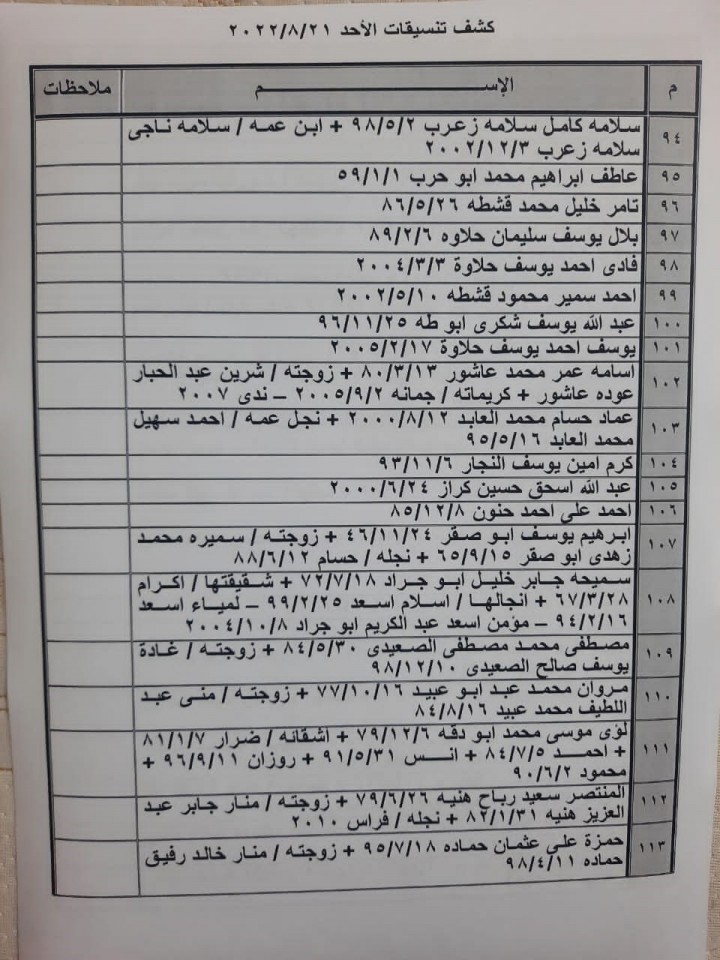 كشف تنسيقات الأحد ٢٠٢٢/٨/٢١
م الإســـم ملاحظات
٩٤ سلامه كامل سلامه زعرب ٩٨/٥/٢ + ابن عمه / سلامه ناجى
سلامه زعرب ٢٠٠٢/١٢/٣
٩٥ عاطف ابراهيم محمد ابو حرب ٥٩/١/١
٩٦ تامر خليل محمد قشطه ٨٦/٥/٢٦
٩٧ بلال يوسف سليمان حلاوه ٨٩/٢/٦
٩٨ فادى احمد يوسف حلاوة ٢٠٠٤/٣/٣
٩٩ احمد سمير محمود قشطه ٢٠٠٢/٥/١٠
١٠٠ عبد الله يوسف شكرى ابو طه ٩٦/١١/٢٥
١٠١ يوسف احمد يوسف حلاوة ٢٠٠٥/٢/١٧
١٠٢ اسامه عمر محمد عاشور ٨٠/٣/١٣ + زوجته / شرين عبد الحبار
عوده عاشور + كريماته / جمانه ٢٠٠٥/٩/٢ – ندى ٢٠٠٧
١٠٣ عماد حسام محمد العابد ٢٠٠٠/٨/١٢ + نجل عمه / احمد سهيل
محمد العابد ٩٥/٥/١٦
١٠٤ كرم امين يوسف النجار ٩٣/١١/٦
١٠٥ عبد الله اسحق حسين كراز ٢٠٠٠/٦/٢٤
١٠٦ احمد على احمد حنون ٨٥/١٢/٨
١٠٧ ابرهيم يوسف ابو صقر ٤٦/١١/٢٤ + زوجته / سميره محمد
زهدى ابو صقر ٦٥/٩/١٥ + نجله / حسام ٨٨/٦/١٢
١٠٨ سميحه جابر خليل ابو جراد ٧٢/٧/١٨ + شقيقتها / اكرام
٦٧/٣/٢٨ + انجالها / اسلام اسعد ٩٩/٢/٢٥ – لمياء اسعد
٩٤/٢/١٦ – مؤمن اسعد عبد الكريم ابو جراد ٢٠٠٤/١٠/٨
١٠٩ مصطفى محمد مصطفى الصعيدى ٨٤/٥/٣٠ + زوجته / غادة
يوسف صالح الصعيدى ٩٨/١٢/١٠
١١٠ مروان محمد عبد ابو عبيد ٧٧/١٠/١٦ + زوجته / منى عبد
اللطيف محمد عبيد ٨٤/٨/١٦
١١١ لؤى موسى محمد ابو دقه ٧٩/١٢/٦ + اشقائه / ضرار ٨١/١/٧
+ احمد ٨٤/٧/٥ + انس ٩١/٥/٣١ + روزان ٩٦/٩/١١ +
محمود ٩٠/٦/٢
١١٢ المنتصر سعيد رباح هنيه ٧٩/٦/٢٦ + زوجته / منار جابر عبد
العزيز هنيه ٨٢/١/٣١ + نجله / فراس ٢٠١٠
١١٣ حمزة على عثمان حماده ٩٥/٧/١٨ + زوجته / منار خالد رفيق
حماده ٩٨/٤/١١